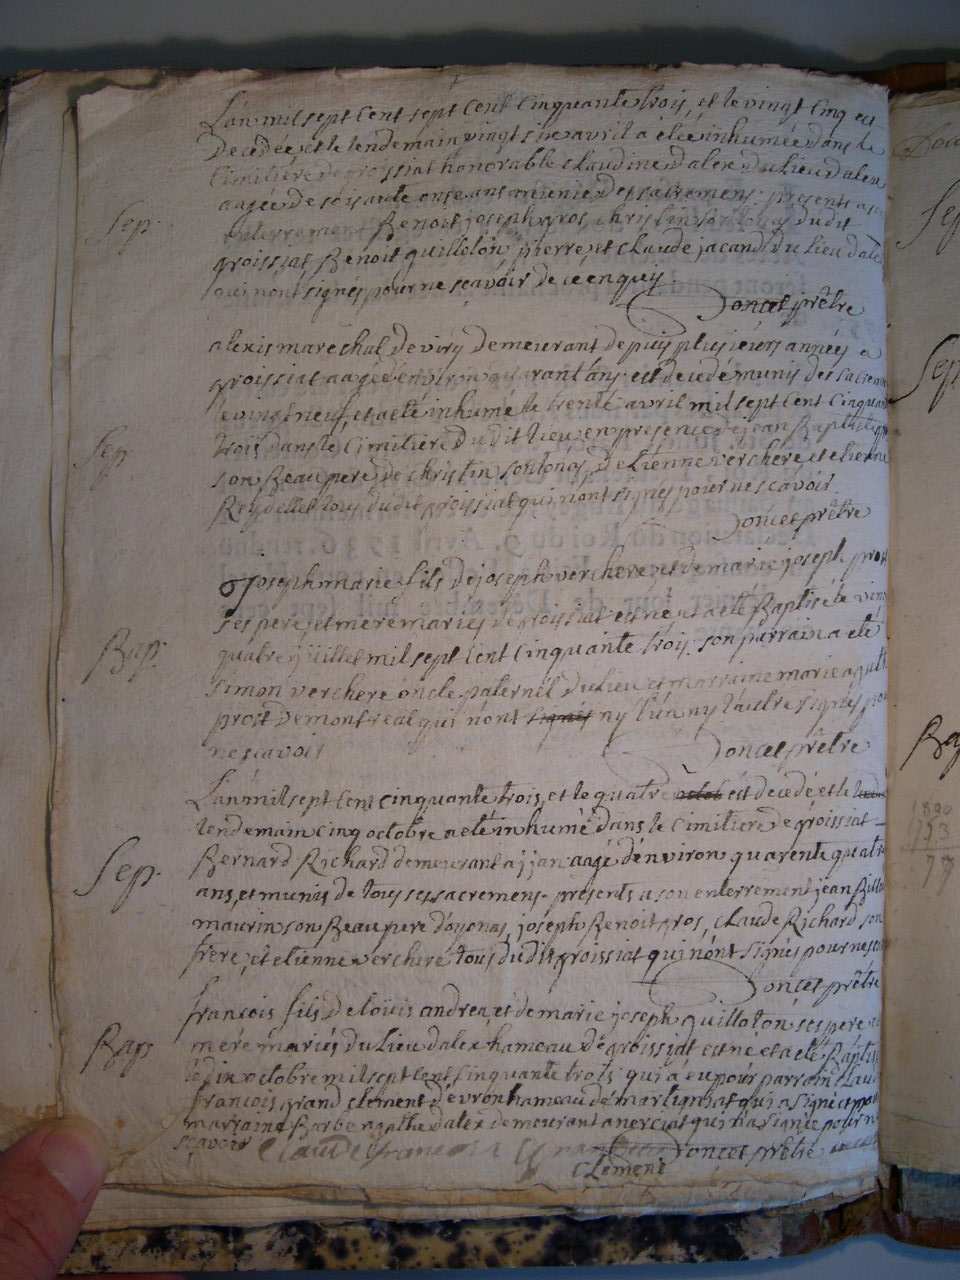 L'an mil sept cent sept cent cinquante trois, et le vingt cinq est
Decedée, et le lendemain vingt six avril a été inhumée dans le
Cimitiere de groissiat honorable Claudine Dalex du Lieu dalex
aagée de soisante onse ans munie des sacremens. presents a son
Sep.
enterrement Benoit joseph gros, chrystin sonthonas dudit
groissiat, Benoit guilleton, pierre, et claude jacand du Lieu dalex
qui n'ont signés pour ne scavoir de ce enquis
Doncet prêtre
alexis marechal de viry demeurant depuis plusieurs années a
groissiat aagé denviron quarant ans est decedé munis des sacremen
le vingt neuf, et a été inhumé le trente avril mil sept cent cinquant
trois dans le Cimitiere du dit lieu en presence de jean Baptiste
Sep.
son Beau pere, de christin sontonas, de Etienne verchere, et etienne
Reydellet tous dudit groissiat qui n'ont signés pour ne scavoir
Doncet prêtre
joseph marie fils de joseph verchere, et de marie joseph prost
ses pere, et mere mariés de groissiat est né, et a eté Baptisé le vingt
Bap.
quatre juillet mil sept cent cinquante trois. son parrain a eté
simon verchere oncle paternel du Lieu et marraine marie agathe
prost de montreal qui n'ont signés ny l'un ny l'autre signés pour
ne scavoir
Doncet prêtre
L'an mil sept cent cinquante trois, et le quatre octob est décédé et le
lendemain cinq octobre a eté inhumé dans le Cimitiere de groissiat
Sep.
Bernard Richard demeurant a jjan aagé d'environ quarente quatre
ans, et munis de tous ses sacremens. presents a son enterrement jean Billo
maurin son Beau pere d'oyonas, joseph Benoit gros, Claude Richard son
frere, et etienne verchere tous du dit groissiat qui n'ont signés pour ne sca
Doncet prêtre
françois fils de loüis andrea, et de marie joseph guilloton ses pere et
Bap.
mére mariés du Lieu dalex hameau de groissiat est né et a eté Baptisé
le dix octobre mil sept cent cinquante trois. qui a eu pour parrain Clau
francois grand clement de vron hameau de martignat qui a signé et pour
marraine Barbe agathe dalex demourant a nerciat qui n'a signée pour ne
scavoir
Claude francois Grand
Clement
Doncet prêtre